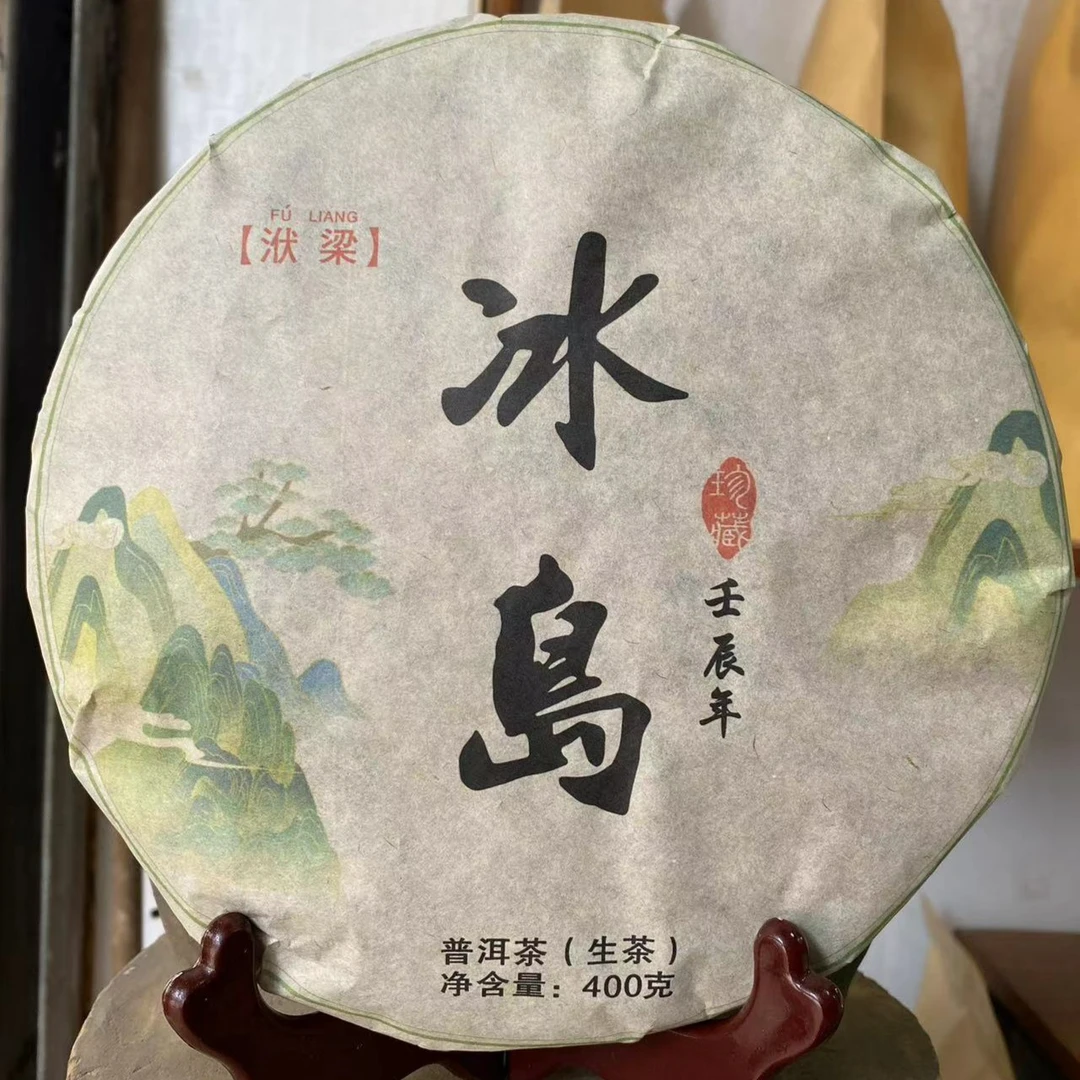 FÚ LIANG
【洑 梁】
冰岛
珍藏
壬辰年
普洱茶（生茶）
净含量：400克